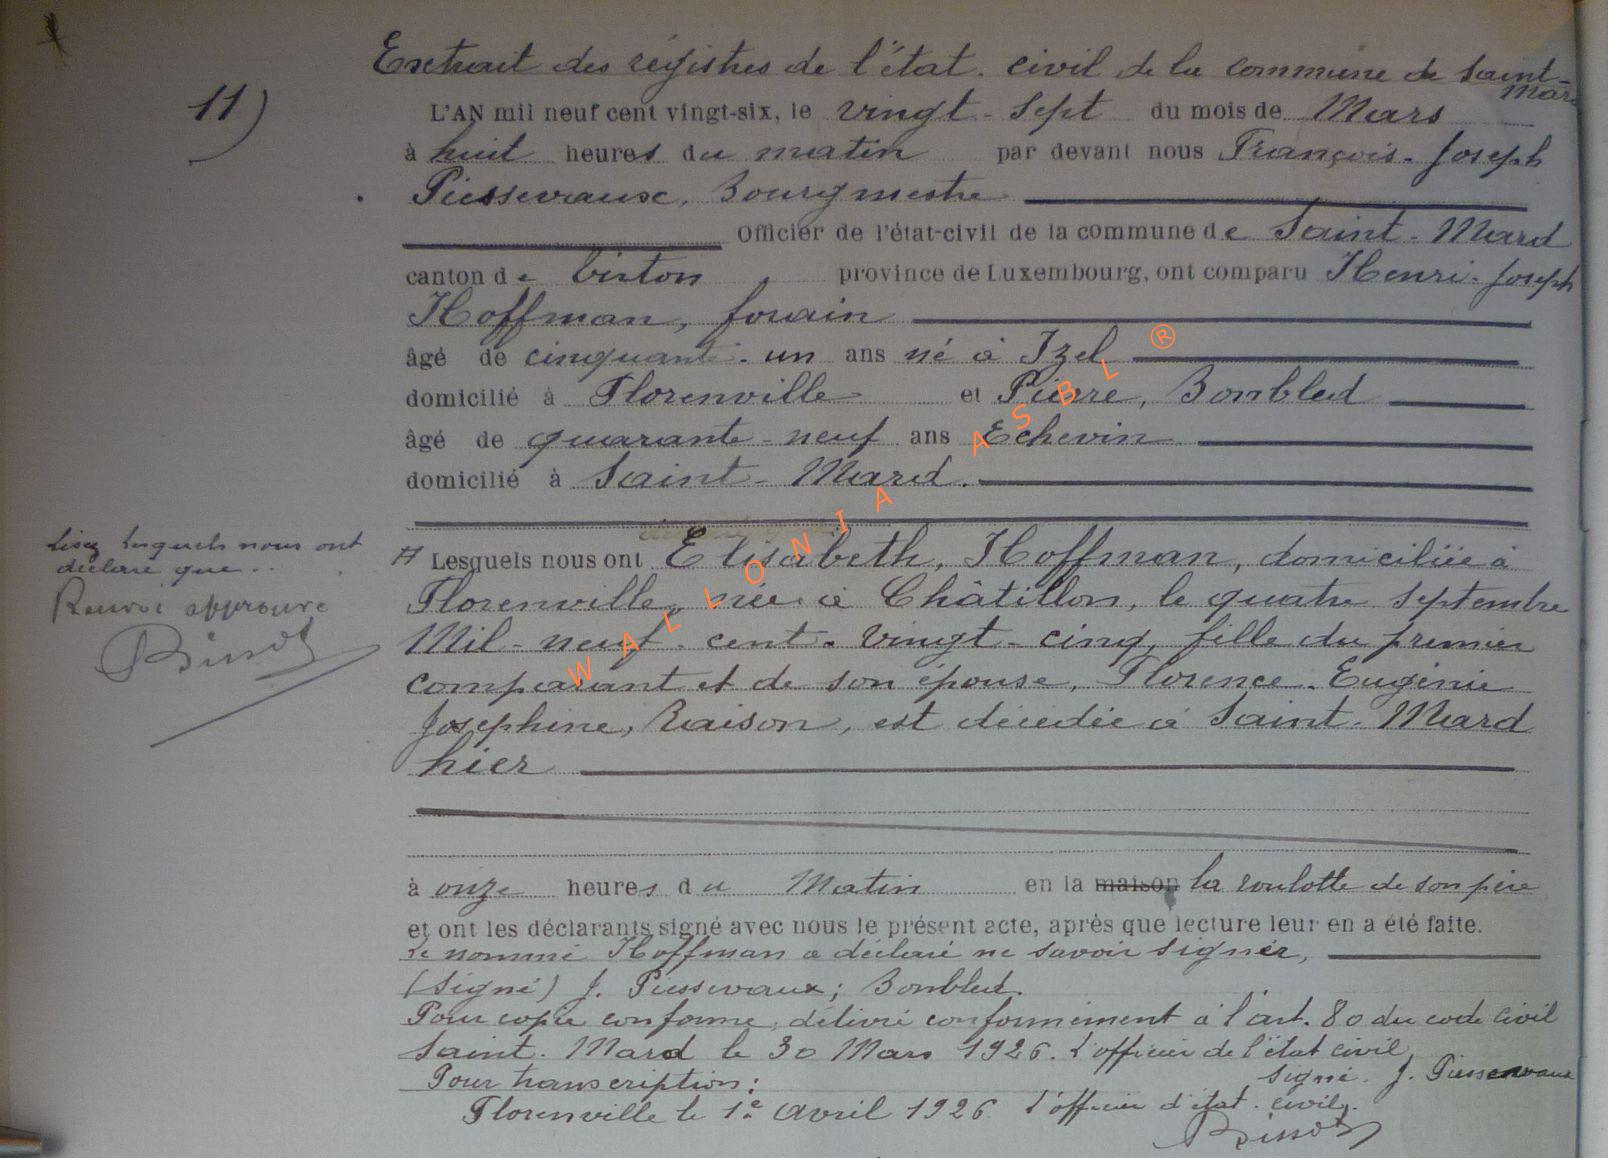 Extrait des régistres de l'état civil de la commune de Saint-Mard
11)
L'AN mil neuf cent vingt-six, le vingt-sept du mois de Mars
à huit heures du matin par devant nous François-Joseph
Piessevaux, Bourgmestre
Officier de l'état-civil de la commune de Saint-Mard
canton de Virton province de Luxembourg, ont comparu Henri-Joseph
Hoffman, forain
âgé de cinquante-un ans né à Izel
domicilié à Florenville et Pierre, Bombled
âgé de quarante-neuf ans Echevin
domicilié à Saint-Mard.
Lisez lesquels nous ont
déclaré que..
Renvoi approuvé
Bissot
Lesquels nous ont Elisabeth, Hoffman, domiciliée à
Florenville, née à Châtillon, le quatre septembre
Mil-neuf-cent-vingt-cinq, fille du premier
comparant et de son épouse, Florence-Eugénie
Joséphine, Raison, est décédée à Saint-Mard
hier
à onze heures du Matin en la maison la roulotte de son père
et ont les déclarants signé avec nous le présent acte, après que lecture leur en a été faite.
Le nommé Hoffman a déclaré ne savoir signer,
(Signé) J. Piessevaux; Bombled.
Pour copie conforme, délivré conformément à l'art. 80 du code civil
Saint-Mard le 30 Mars 1926. L'officier de l'état civil,
signé. J. Piessevaux
Pour transcription:
Florenville le 1e avril 1926. L'officier d'état-civil,
Bissot
WALLONIA ASBL ®